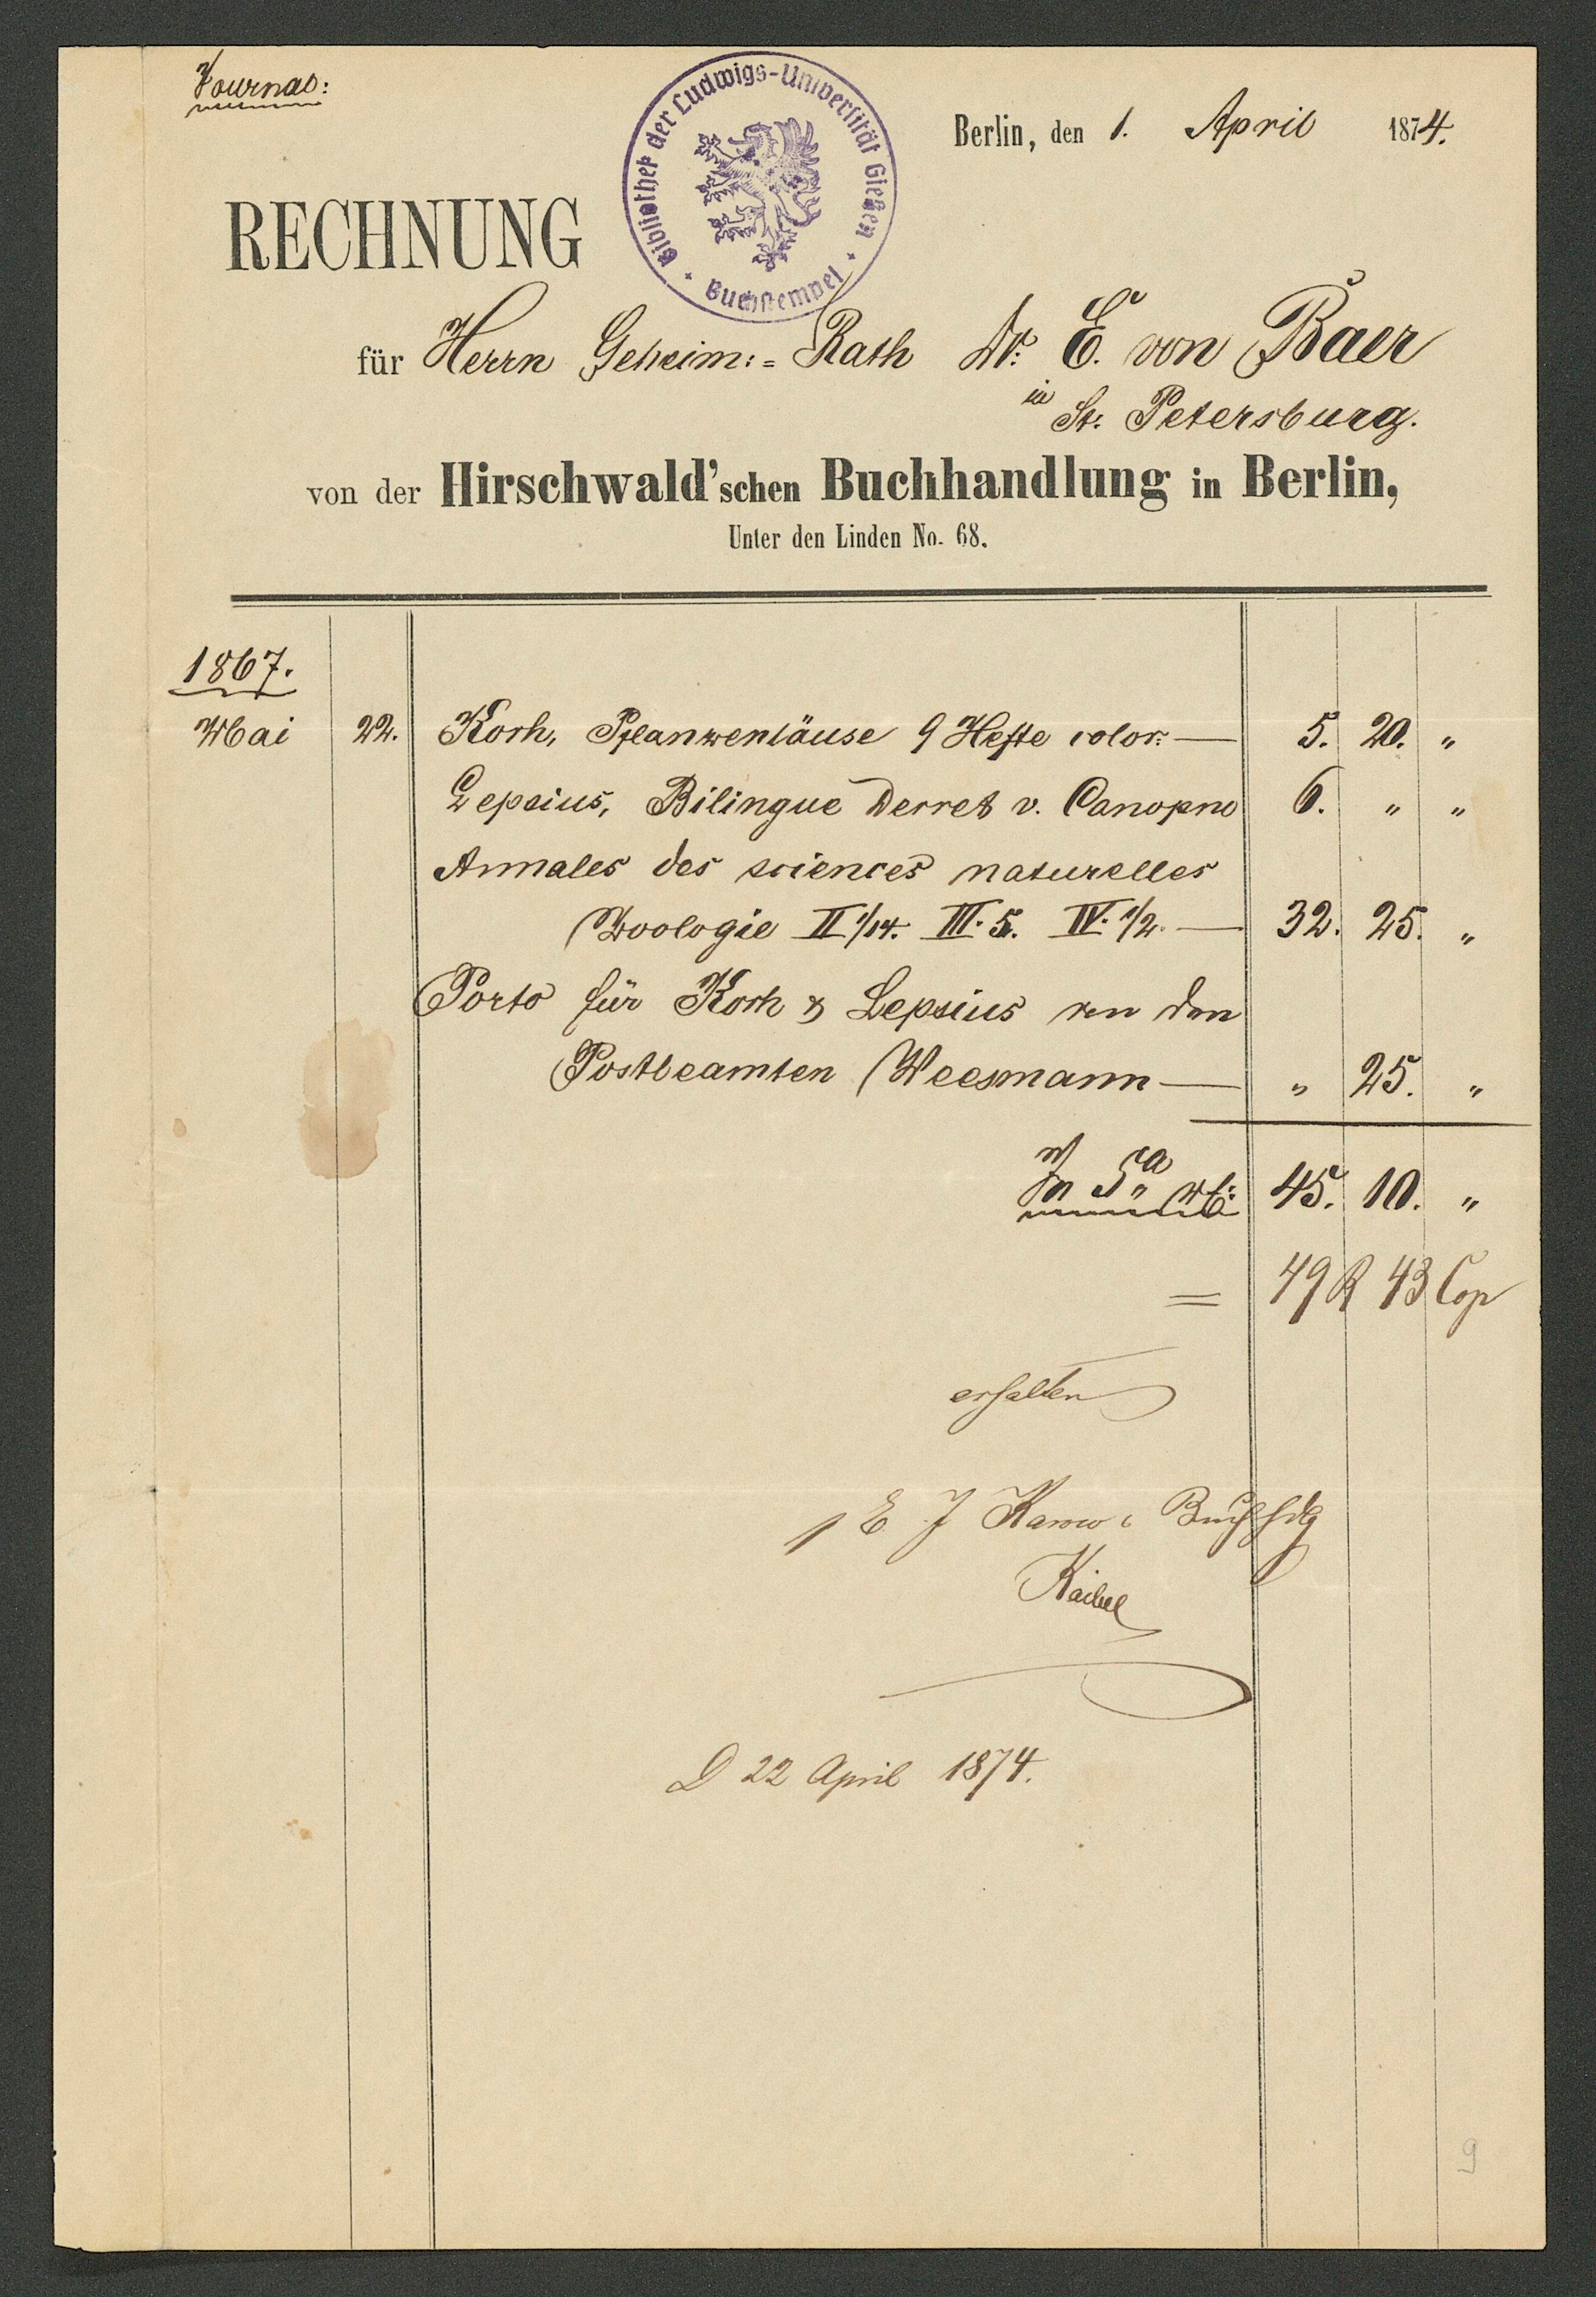 Journal:
Bibliothek der Ludwigs-Universität Gießen
Buchstempel
Berlin, den 1. April 1874.
RECHNUNG
für Herrn Geheim:= Rath Dr. E. von Baer
in St. Petersburg.
von der Hirschwald'schen Buchhandlung in Berlin,
Unter den Linden No. 68.
1867.
Mai 22. Koch, Pflanzenläuse 9 Hefte color: — 5. 20. "
Lepsius, Bilingue Decret v. Canopus 6. " "
Annales des sciences naturelles
Zoologie II 1/14. III. 5. IV. 1/2. — 32. 25. "
Porto für Koch & Lepsius an den
Postbeamten Weesmann — " 25. "
45. 10. "
= 49 R 43 Cop
erhalten
E J Buchhdg
D 22 April 1874.
9